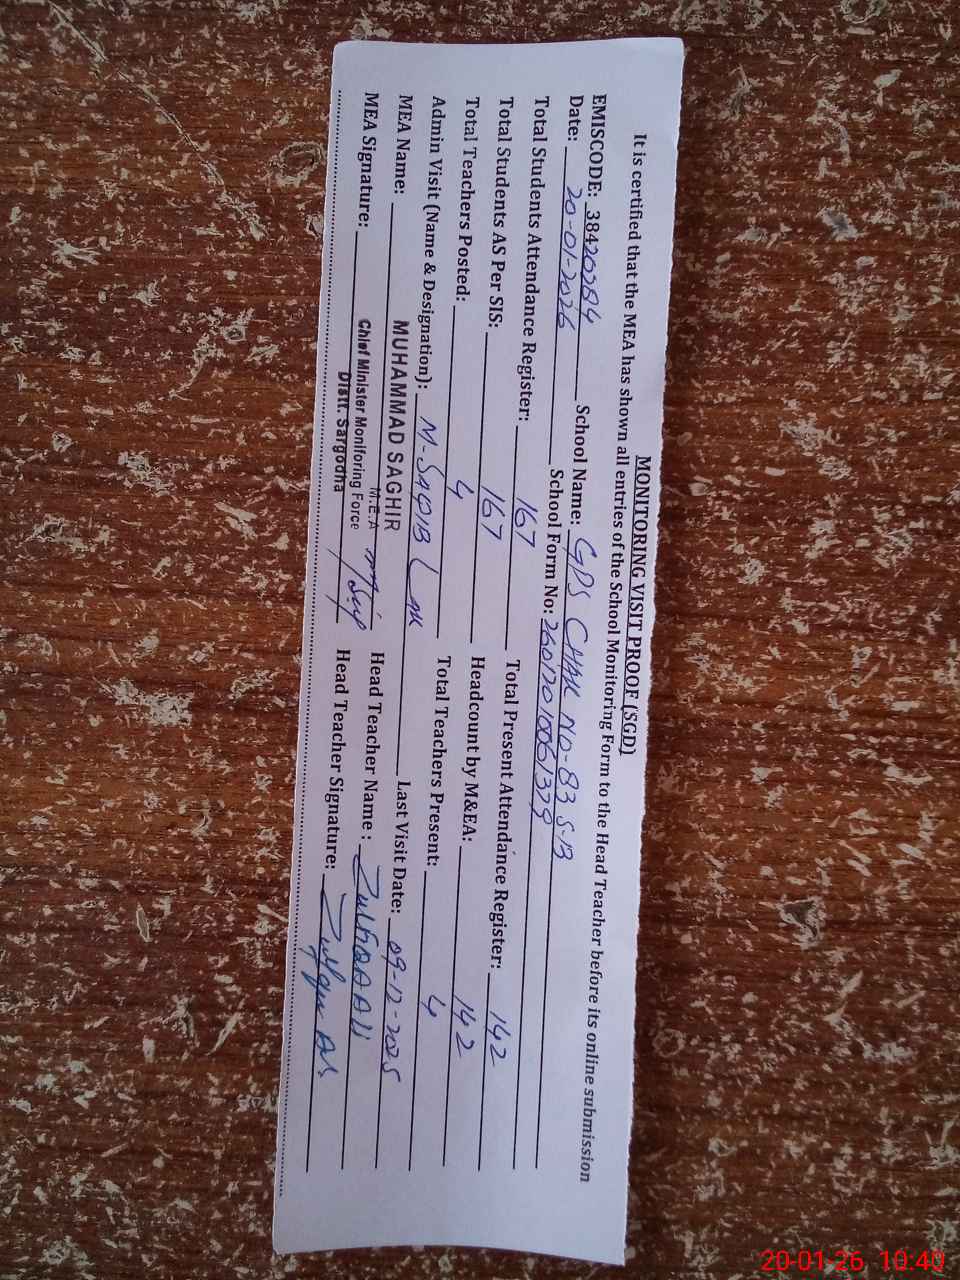 MONITORING VISIT PROOF (SGD)
It is certified that the MEA has shown all entries of the School Monitoring Form to the Head Teacher before its online submission
EMISCODE: 38420284 School Name: GPS CHAK NO-83 S-B
Date: 20-01-2026 School Form No:
Total Students Attendance Register: 167 Total Present Attendance Register: 142
Total Students AS Per SIS: 167 Headcount by M&EA: 142
Total Teachers Posted: 4 Total Teachers Present: 4
Admin Visit (Name & Designation): M-SAQIB Last Visit Date: 09-12-2025
MEA Name: MUHAMMAD SAGHIR Head Teacher Name :
M.E.A
MEA Signature: Chief Minister Moniforing Force Head Teacher Signature:
Distt. Sargodha
20-01-26 10:40